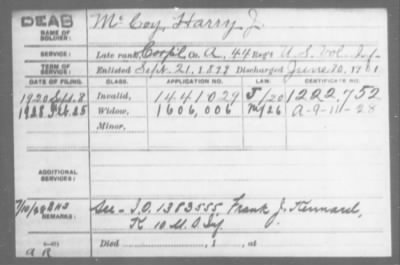 DEAB
NAME OF SOLDIER: McCoy, Harry J.
SERVICE: Late rank, Corp'l Co. A, 44 Reg't U.S. Vol. Inf.
TERM OF SERVICE: Enlisted Sept. 21, 1899 Discharged June 30, 1901
DATE OF FILING. CLASS. APPLICATION NO. LAW. CERTIFICATE NO.
1920 Sept. 8 Invalid, 1441029 J/20 1222.752
1928 Feb. 25 Widow, 1606,006 My26 A-9-11-28
Minor,
ADDITIONAL SERVICES:
REMARKS: See - I.O. 1383555. Frank J. Kennard,
K 10 U.S. Inf
Died , 1 , at